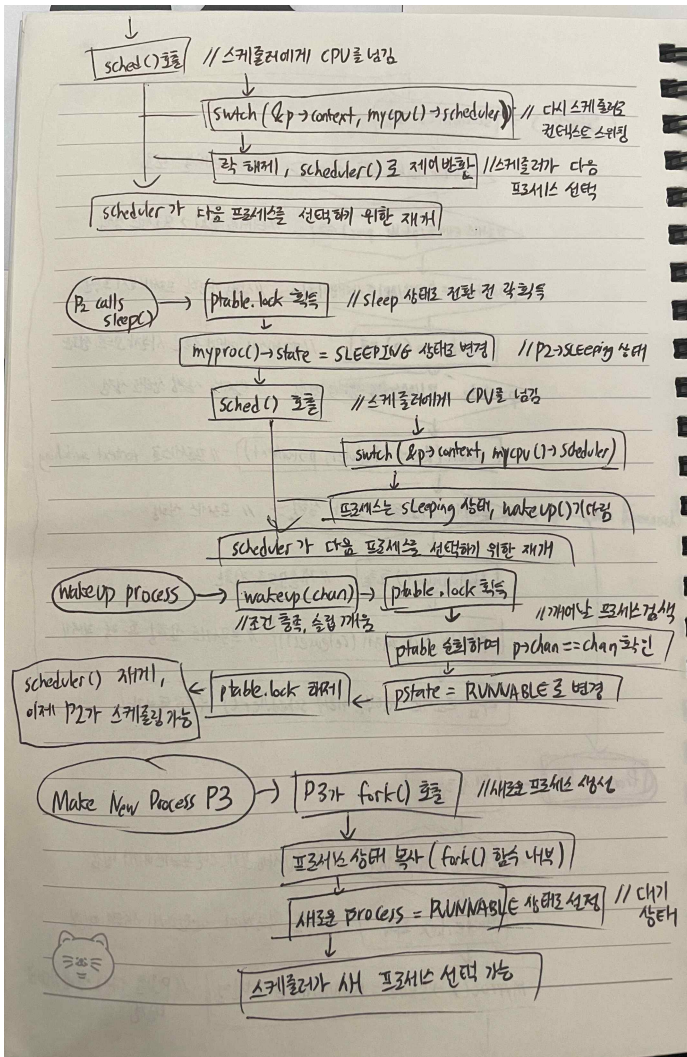 sched() 호출 // 스케줄러에게 CPU를 넘김
swtch(&p->context, mycpu()->scheduler) // 다시 스케줄러로
컨텍스트 스위칭
락 해제, scheduler()로 제어반환 //스케줄러가 다음
프로세스 선택
scheduler가 다음 프로세스를 선택하기 위한 재개
P2 calls
sleep()
ptable.lock 획득 //sleep 상태로 전환 전 락 획득
myproc()->state = SLEEPING 상태로 변경 //P2->sleeping 상태
sched() 호출 //스케줄러에게 CPU를 넘김
swtch(&p->context, mycpu()->scheduler)
프로세스는 sleeping 상태, wakeup()기다림
scheduler가 다음 프로세스를 선택하기 위한 재개
wakeup process
wakeup(chan)
ptable.lock 획득
//조건 충족, 슬립 깨움
//깨어날 프로세스 검색
ptable 순회하며 p->chan==chan 확인
pstate = RUNNABLE로 변경
ptable.lock 해제
scheduler() 재개,
이제 P2가 스케줄링 가능
Make New Process P3
P3가 fork() 호출 //새로운 프로세스 생성
프로세스 상태 복사 (fork() 함수 내부)
새로운 process = RUNNABLE 상태로 설정 // 대기
상태
스케줄러가 새 프로세스 선택 가능